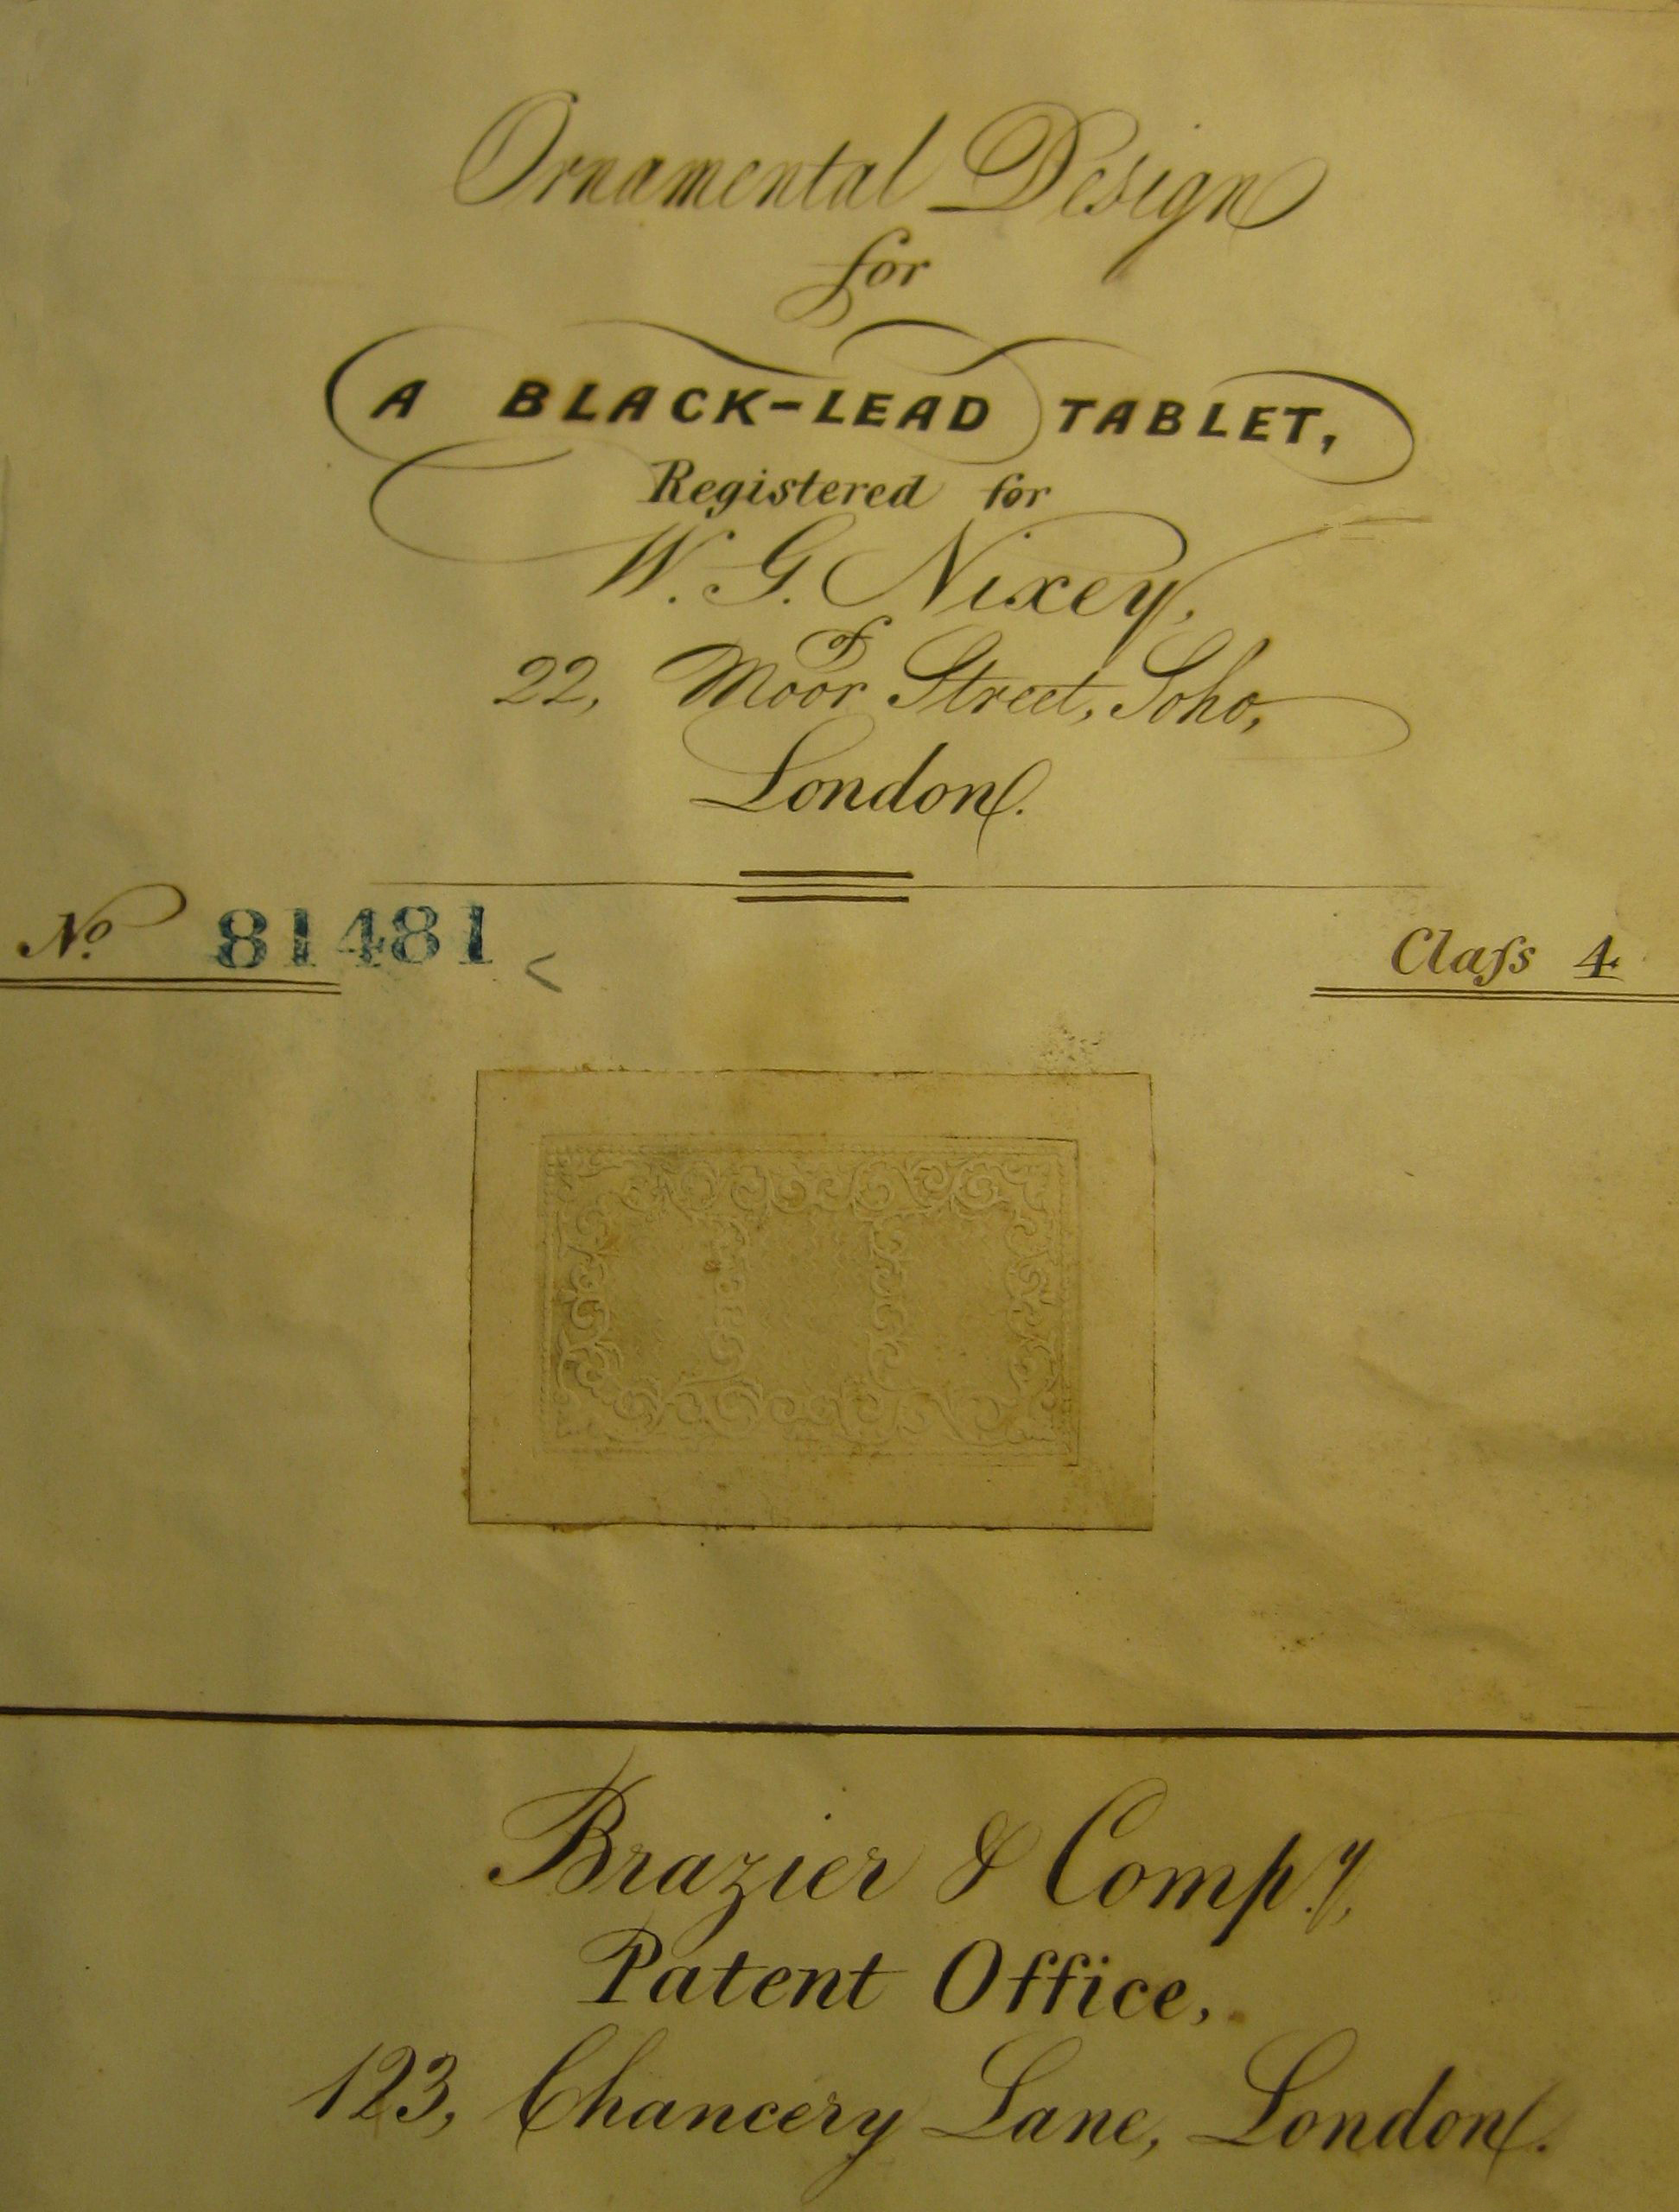 Ornamental Design
for
A BLACK-LEAD TABLET,
Registered for
W. G. Nixey,
of
22, Moor Street, Soho,
London.
No. 81481
Claſs 4
Brazier & Compy,
Patent Office,
123, Chancery Lane, London.